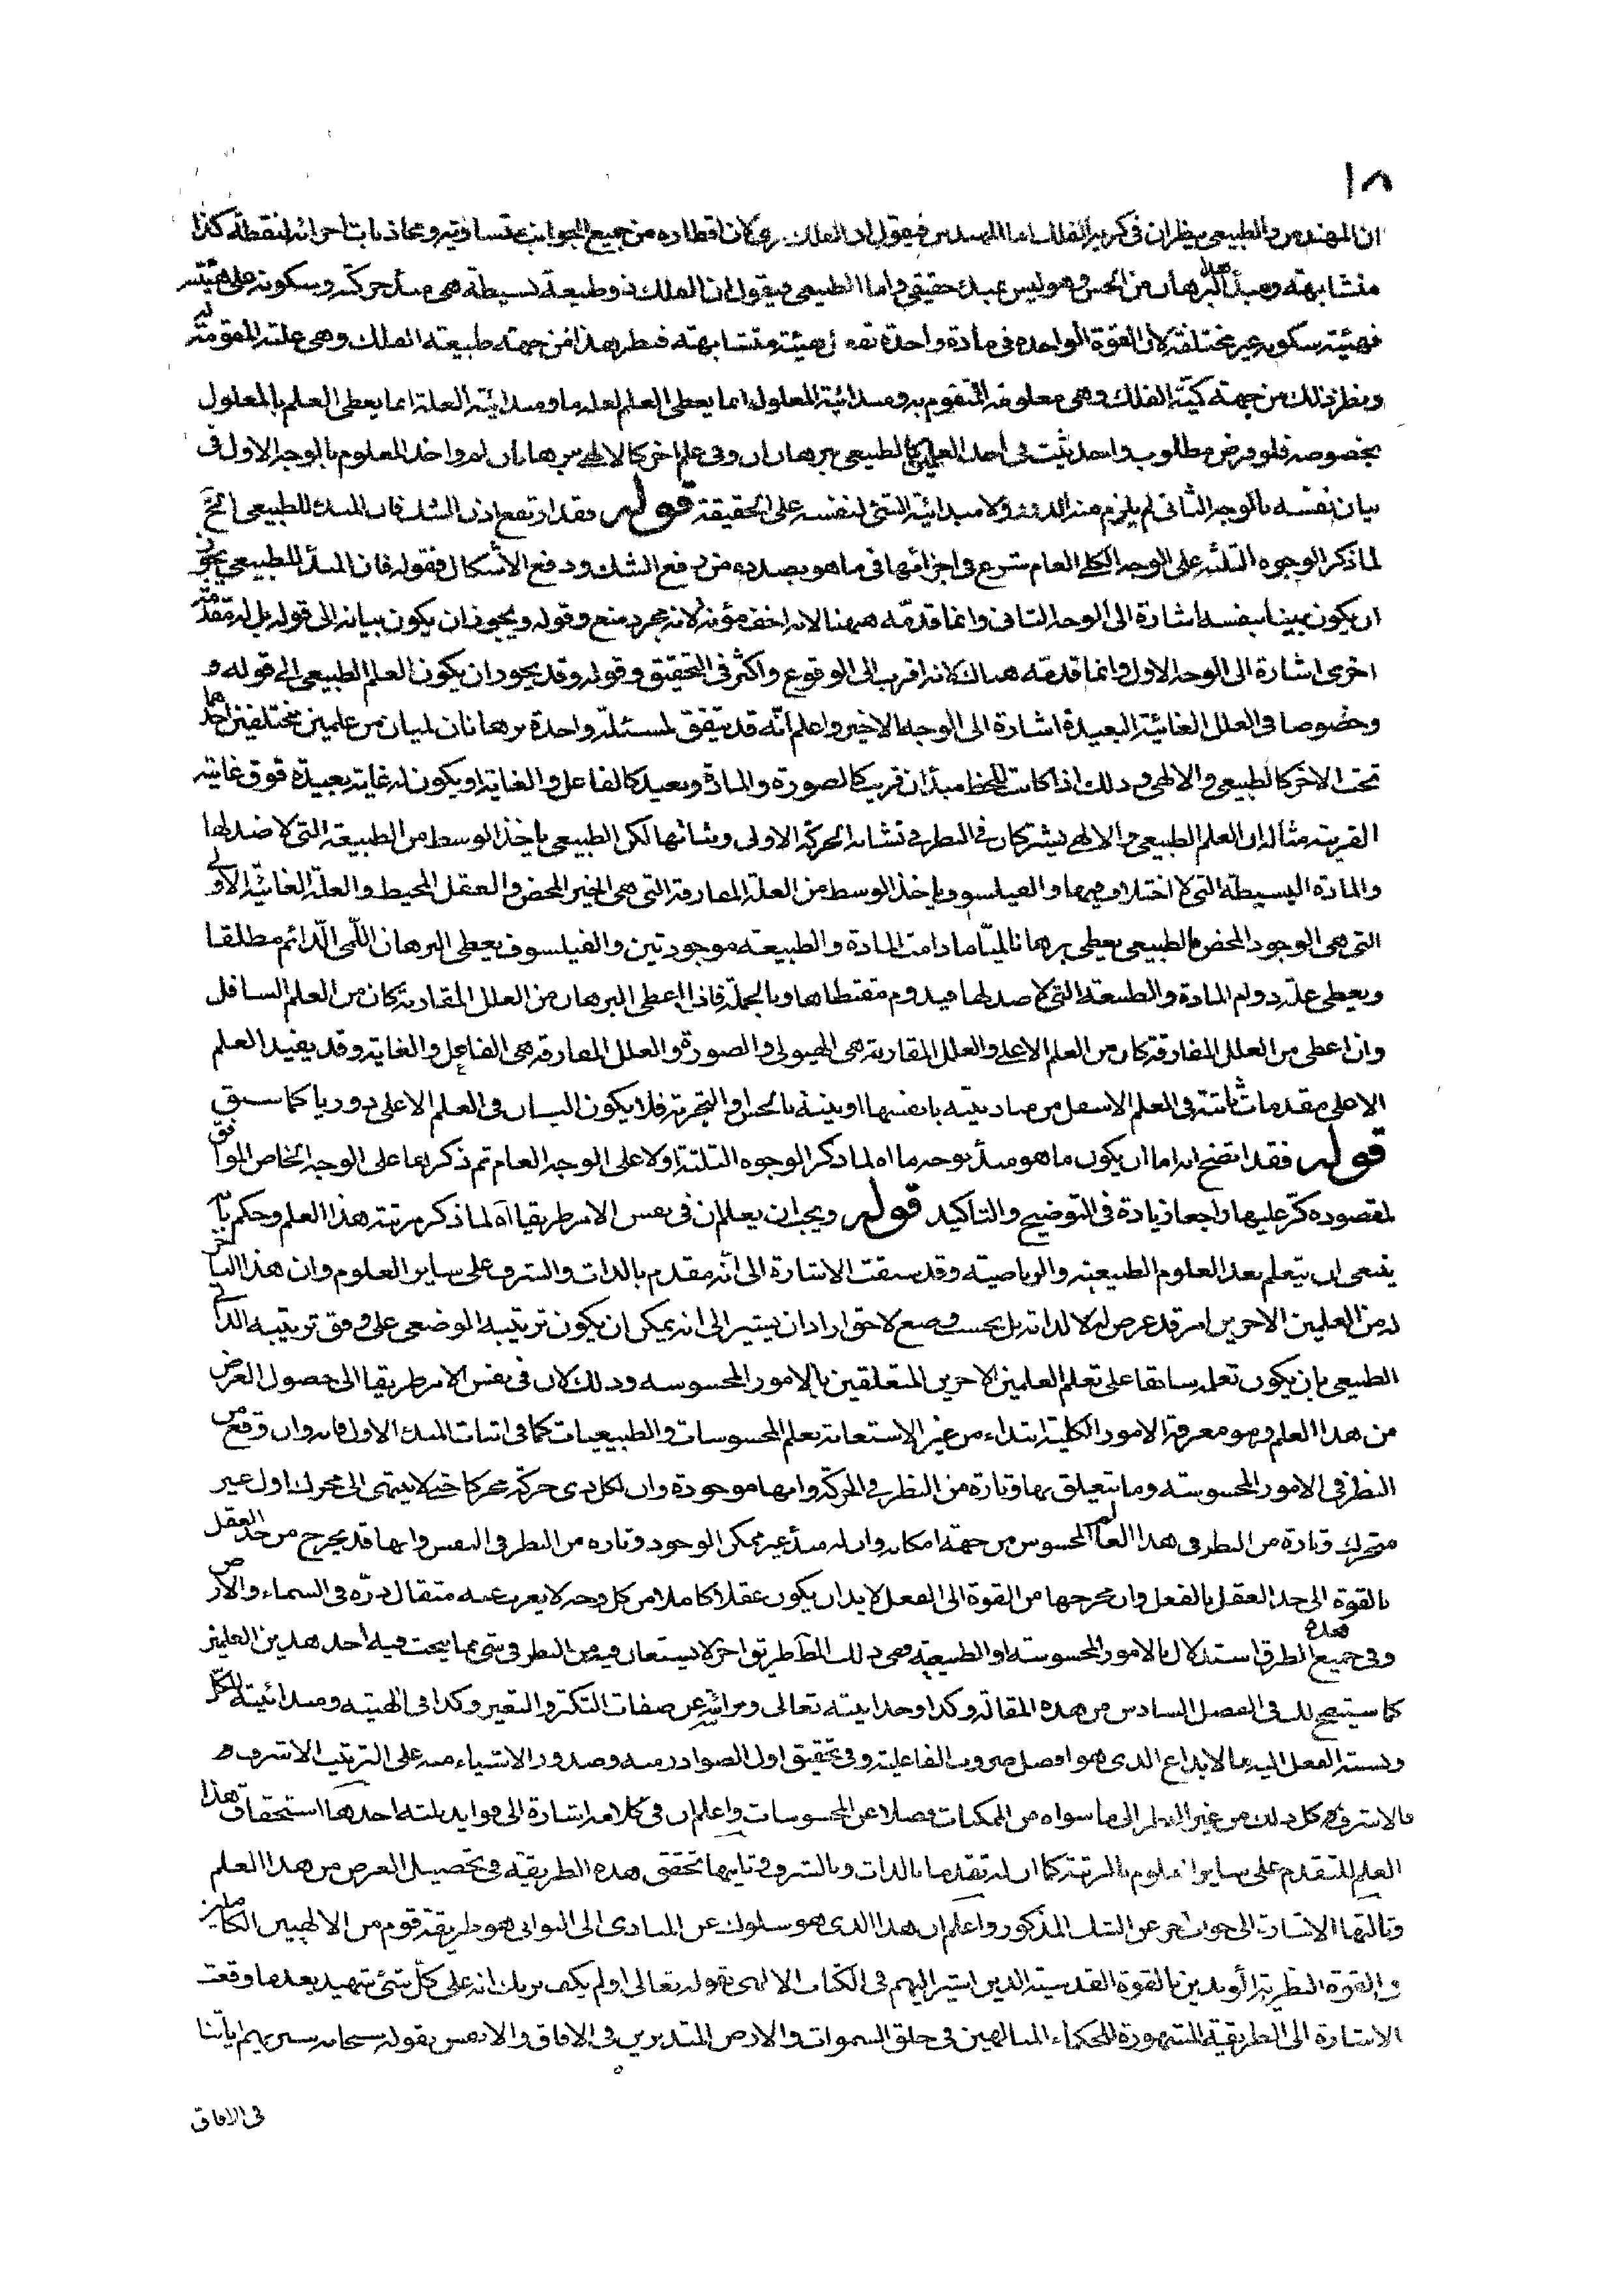 ١٨
ان المهندس والطبيعى ينظران فى كرية الفلك اما المهندس فيقول ان الفلك كرى لان اقطاره من جميع الجوانب متساوية ومحاذيات اجزائه لنقطة كذا
متشابهة ومبدأ هذا البرهان من الحس وهو ليس بمبدء حقيقى واما الطبيعى فيقول ان الفلك ذو طبيعة بسيطة هى مبدأ حركته وسكونه على هيئته
فهيئة سكونه غير مختلفة لان القوة الواحدة فى مادة واحدة تفعل هيئة متشابهة فنظر هذا من جهة طبيعة الفلك وهى علته المقومة له
ونظر ذلك من جهة كمية الفلك وهى معلومة المتقوم به ومبدائية المعلول انما يعطى العلم لعلة ما ومبدائية العلة انما يعطى العلم بالمعلول
بخصوصه فلو فرض مطلوب واحد يثبت فى احد العلمين كالطبيعى ببرهان ان وفى علم اخر كالالهى ببرهان لم واخذ المعلوم بالوجه الاول فى
بيان نفسه بالوجه الثانى لم يلزم منه الدور ولا مبدائية الشئ لنفسه على الحقيقة قوله فقد ارتفع اذن الشك فان المبدء للطبيعى الخ
لما ذكر الوجوه الثلثة على الوجه الكلى العام شرع فى اجزائها فى ما هو بصدده من دفع الشك ودفع الأشكال فقوله فان المبدأ للطبيعى يجوز
ان يكون بينا بنفسه اشارة الى الوجه الثانى وانما قدمه ههنا لانه اخف مؤنة لانه مجرد منع وقوله ويجوز ان يكون بيانه الى قوله بل له مقدمة
اخرى اشارة الى الوجه الاول وانما قدمه هناك لانه اقرب الى الوقوع واكثر فى التحقيق وقوله وقد يجوز ان يكون العلم الطبيعى الى قوله و
وخصوصا فى العلل الغائية البعيدة اشارة الى الوجه الاخير واعلم انّه قد يتفق لمسئلة واحدة برهانان لميان من علمين مختلفين احدهما
تحت الاخر كالطبيعى والالهى وذلك اذا كانت للحظ مبدأن قريب كالصورة والمادة وبعيد كالفاعل والغاية او يكون له غاية بعيدة فوق غايته
القريبة مثاله ان العلم الطبيعى والالهى يشتركان فى النظر فى تشابه الحركة الاولى وثباتها لكن الطبيعى ياخذ الوسط من الطبيعة التى لا ضد لها
والمادة البسيطة التى لا اختلاف فيها والفيلسوف ياخذ الوسط من العلة المفارقة التى هى الخير المحض والعقل المحيط والعلة الغائية الاولى
التى هى الوجود المحض فالطبيعى يعطى برهانا لميّا ما دامت المادة والطبيعة موجودتين والفيلسوف يعطى البرهان اللّمى الدّائم مطلقا
ويعطى علة دوام المادة والطبيعة التى لا ضد لها فيدوم مقتضاها وبالجملة فاذا اعطى البرهان من العلل المقارنة كان من العلم السافل
وان اعطى من العلل المفارقة كان من العلم الاعلى والعلل المقارنة هى الهيولى والصورة والعلل المفارقة هى الفاعل والغاية وقد يفيد العلم
الاعلى مقدمات ثابتة فى العلم الاسفل من مباد بينة بانفسها او بينة بالحس او التجربة فلا يكون البيان فى العلم الاعلى دوريا كما سبق
قوله فقد اتضح انه اما ان يكون ما هو مبدأ بوجه ما اه لما ذكر الوجوه الثلثة اولا على الوجه العام ثم ذكرها على الوجه الخاص الموافق
لمقصوده كرّ عليها راجعا زيادة فى التوضيح والتاكيد قوله ويجب ان يعلم ان فى نفس الامر طريقا اه لما ذكر مرتبة هذا العلم وحكم بانه
ينبغى ان يتعلم بعد العلوم الطبيعية والرياضية وقد سبقت الاشارة الى انّه مقدم بالذات والشرف على ساير العلوم وان هذا التاخر
له من العلمين الاخرين امر قد عرض له لا لذاته بل بحسب وضع لاحق اراد ان يشير الى انه يمكن ان يكون ترتيبه الوضعى على وفق ترتيبه الذاتى
الطبيعى بان يكون تعلمه سابقا على تعلم العلمين الاخرين المتعلقين بالامور المحسوسة وذلك لان فى نفس الامر طريقا الى حصول الغرض
من هذا العلم وهو معرفة الامور الكلية ابتداء من غير الاستعانة بعلم المحسوسات والطبيعيات كما فى اثبات المبدء الاول فانه وان وقع من
النظر فى الامور المحسوسة وما يتعلق بها وتارة من النظر فى الحركة وانها موجودة وان لكل ذى حركة محركا حتى لا ينتهى الى محرك اول غير
متحرك وتارة من النظر فى هذا العالم المحسوس من جهة امكانه وان له مبدأ غير ممكن الوجود وتارة من النظر فى النفس وانها قد يخرج من حد العقل
بالقوة الى حد العقل بالفعل وان مخرجها من القوة الى الفعل لا بد ان يكون عقلا كاملا من كل وجه لا يعزب عنه مثقال ذرّة فى السماء والارض
وفى جميع هذه الطرق استدلال بالامور المحسوسة او الطبيعية طريق اخر لا يستعان فيه من النظر فى شئ مما يبحث فيه احد هذين العلمين
كما سيتضح لك فى الفصل السادس من هذه المقالة وكذا وحدانيته تعالى وبرائته عن صفات التكثر والتغير وكذا فى الهيته ومبدائيته للكل
ونسبة الفعل اليه بالابداع الذى هو افضل ضروب الفاعلية وفى تحقيق اول الصوادر منه وصدور الاشياء منه على الترتيب الاشرف و
فالاشرف كل ذلك من غير النظر الى ما سواه من الممكنات فضلا عن المحسوسات واعلم ان فى كلامه اشارة الى فوايد ثلثة احدها استحقاق هذا
العلم للتقدم على ساير العلوم بالمرتبة كما ان له تقدما بالذات وبالشرف وثانيها تحقق هذه الطريقة فى تحصيل الغرض من هذا العلم
وثالثها الاشارة الى جواب اخر عن الشك المذكور واعلم ان هذا الذى هو سلوك عن المبادى الى الثوانى هو طريقة قوم من الالهيين الكاملين
فى القوة النظرية المؤيدين بالقوة القدسية الذين اشير اليهم فى الكتاب الالهى بقوله تعالى اولم يكف بربك انه على كلّ شئ شهيد بعد ما وقعت
الاشارة الى الطريقة المشهورة للحكماء المتالهين فى خلق السموات والارض المتدبرين فى الافاق والانفس بقوله سبحانه سنريهم اياتنا
فى الافاق